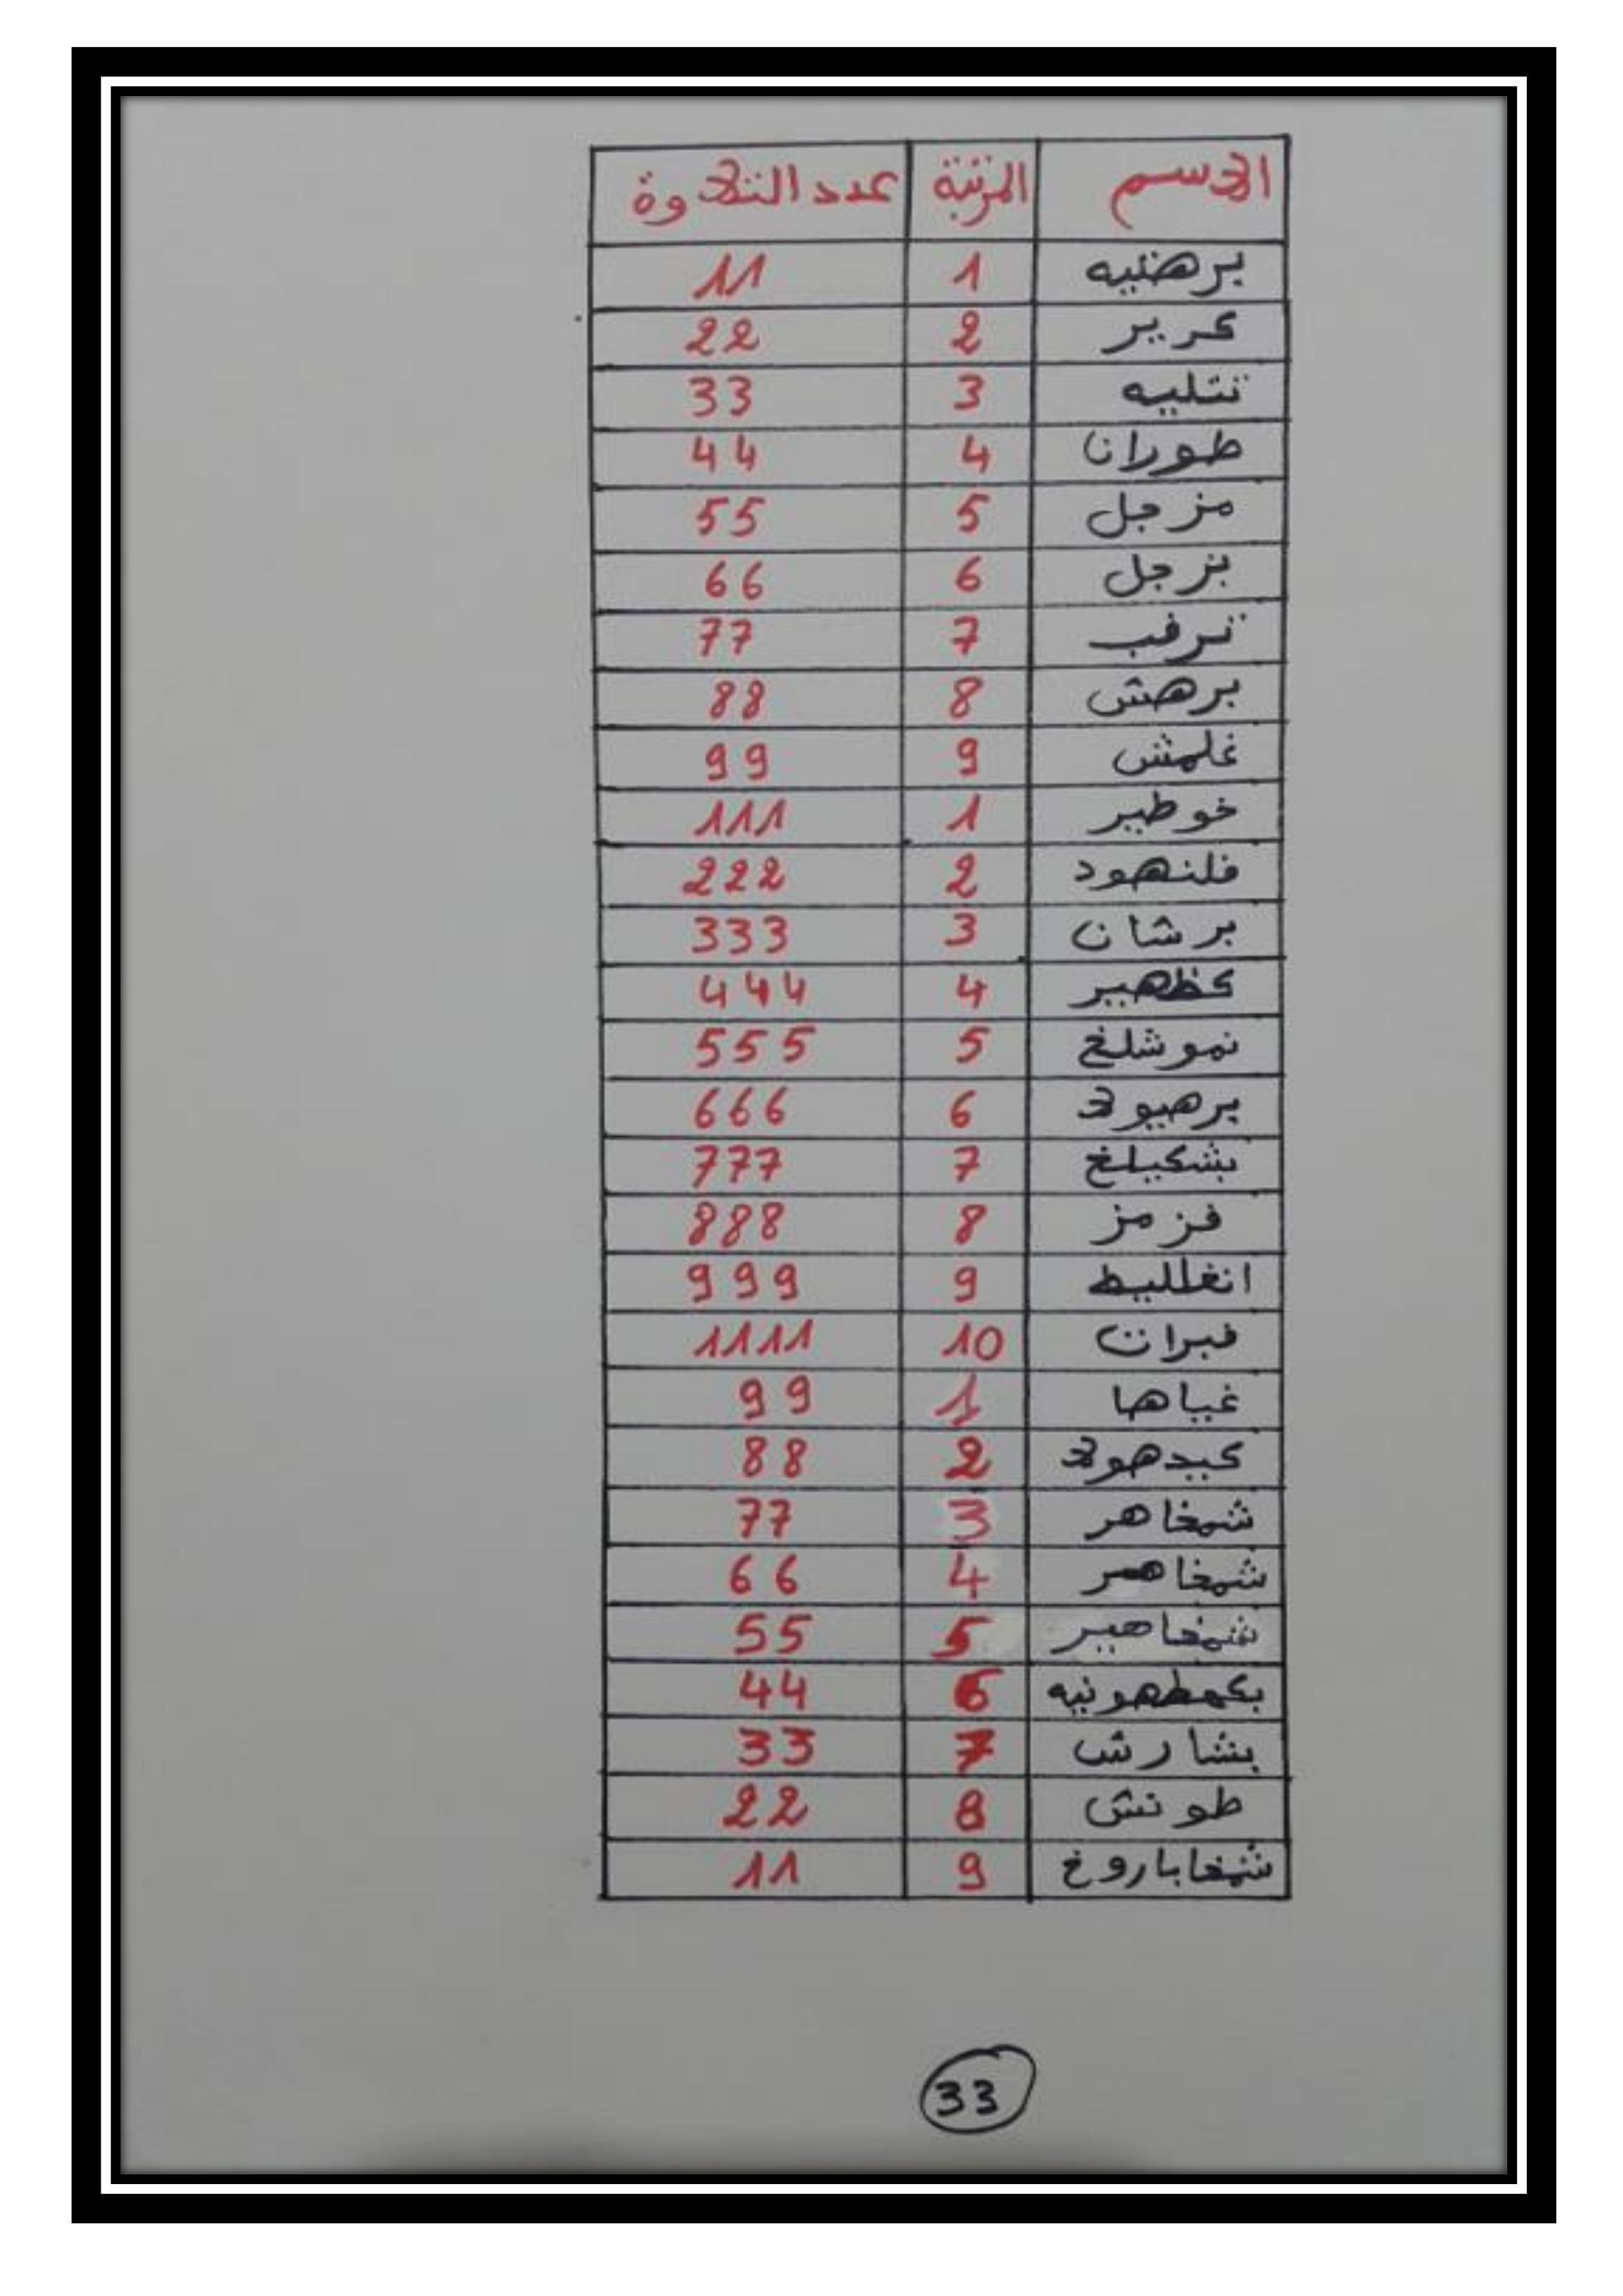 الاسم المرتبة عدد التلاوة
برهتيه 1 11
كرير 2 22
تتليه 3 33
طوران 4 44
مزجل 5 55
بزجل 6 66
ترقب 7 77
برهش 8 88
غلمش 9 99
خوطير 1 111
قلنهود 2 222
برشان 3 333
كظهير 4 444
نموشلخ 5 555
برهيولا 6 666
بشكيلخ 7 777
قزمز 8 888
انغلليط 9 999
قبرات 10 1111
غياها 1 99
كيدهولا 2 88
شمخاهر 3 77
شمخاهير 4 66
شمهاهير 5 55
بكهطهونيه 6 44
بشارش 7 33
طونش 8 22
شمخاباروخ 9 11
33